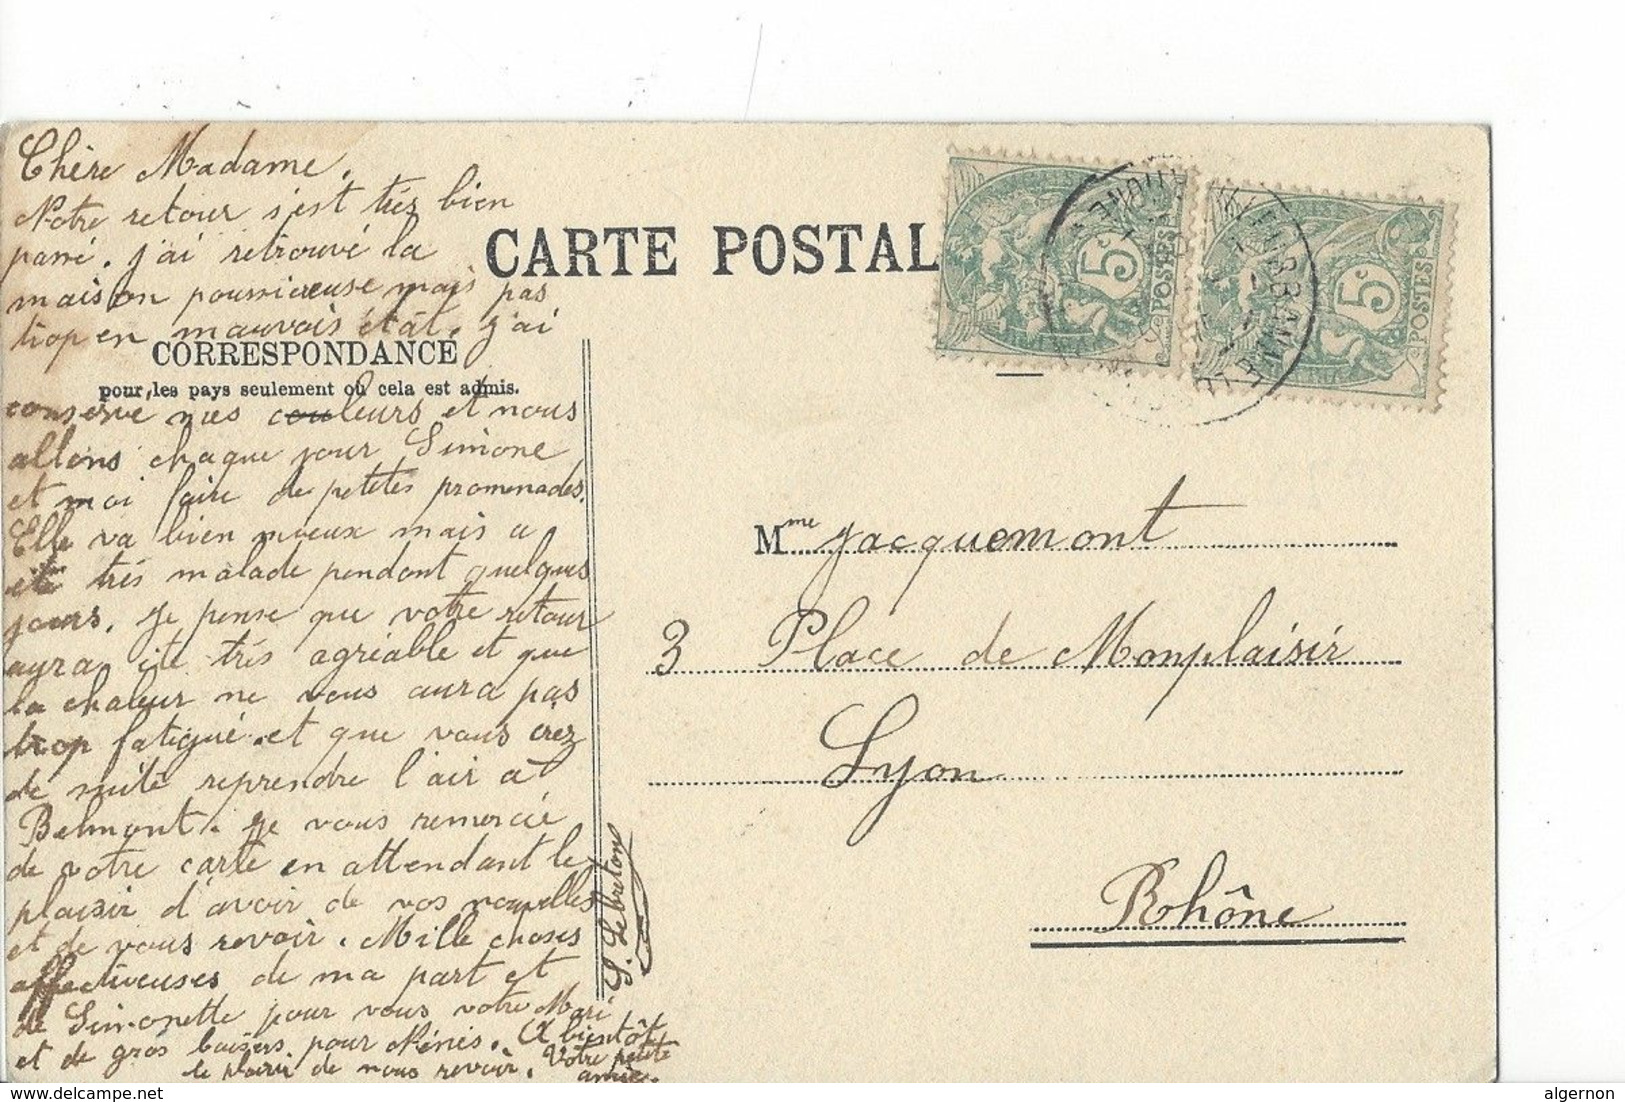 Chère Madame.
Notre retour s'est trés bien
passé. j'ai retrouvé la
maison poussiereuse mais pas
trop en mauvais état. j'ai
CARTE POSTAL
CORRESPONDANCE
pour les pays seulement où cela est admis.
conserve mes couleurs et nous
allons chaque jour Simone
et moi faire de petites promenades.
Elle va bien mieux mais a
été trés malade pendant quelques
jours. je pense que votre retour
aura été trés agréable et que
la chaleur ne vous aura pas
trop fatigué. et que vous irez
de suite reprendre l'air à
Belmont. je vous remercie
de votre carte en attendant le
plaisir d'avoir de vos nouvelles
et de vous revoir. Mille choses
affectueuses de ma part et
de Simonette pour vous votre Mari
et de gros baisers pour Nénés. A bientôt
le plaisir de nous revoir. Votre petite
amie.
S. Lebreton
Mme Jacquemont
3 Place de Monplaisir
Lyon
Rhône
5c
POSTES
5c
POSTES
VILLEURBANNE
algernon
delcampe.net